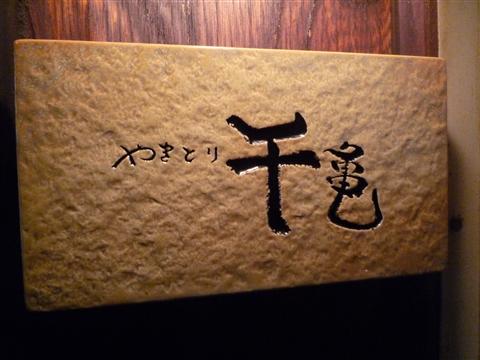 やきとり 千亀